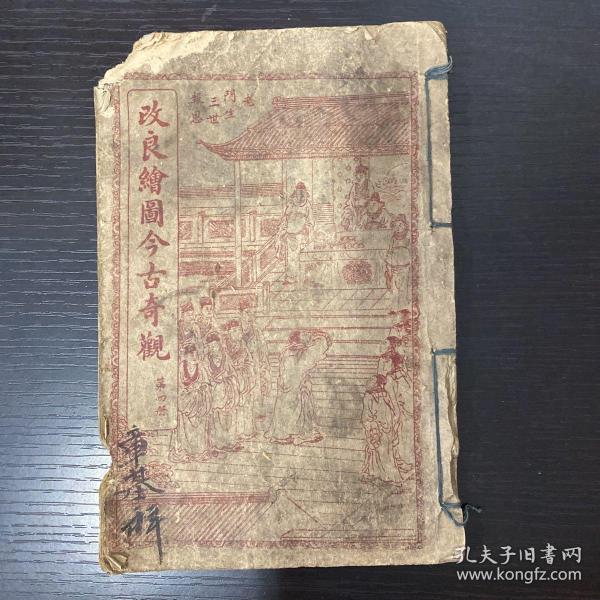 改良繪圖今古奇觀
第四冊
老
門生
三世
報恩
章基
孔夫子旧書网
www.kongfz.com